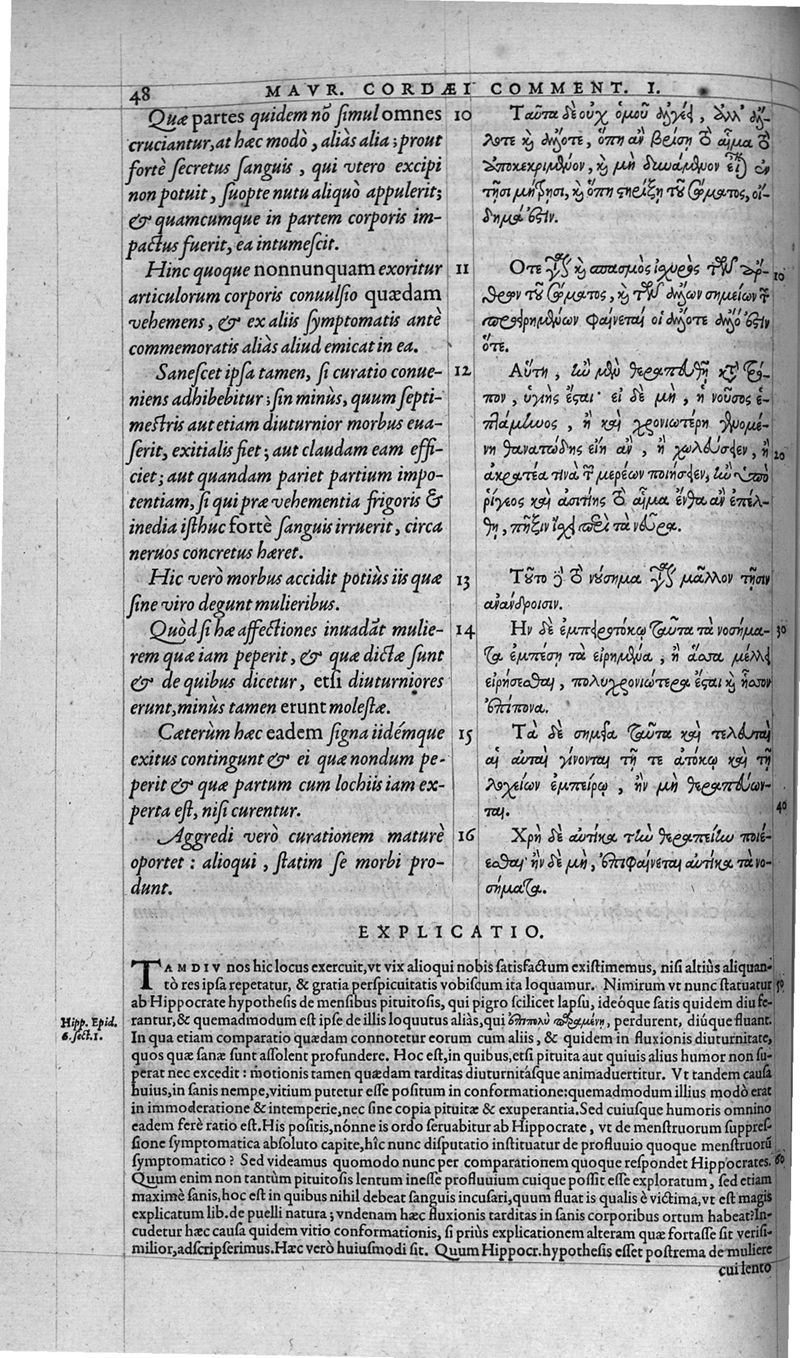 48 MAVR. CORDÆI COMMENT. I.
Quæ partes quidem nō simul omnes
cruciantur, at hæc modò, aliàs alia; prout
fortè secretus sanguis, qui vtero excipi
non potuit, suopte nutu aliquò appulerit;
& quamcumque in partem corporis im-
pactus fuerit, ea intumescit.
Hinc quoque nonnunquam exoritur
articulorum corporis conuulsio quædam
vehemens, & ex aliis symptomatis antè
commemoratis aliàs aliud emicat in ea.
Sanescet ipsa tamen, si curatio conue-
niens adhibebitur; sin minùs, quum septi-
mestris aut etiam diuturnior morbus eua-
serit, exitialis fiet; aut claudam eam effi-
ciet; aut quandam pariet partium impo-
tentiam, si qui præ vehementia frigoris &
inedia isthuc fortè sanguis irruerit, circa
neruos concretus hæret.
Hic verò morbus accidit potiùs iis quæ
sine viro degunt mulieribus.
Quòd si hæ affectiones inuadāt mulie-
rem quæ iam peperit, & quæ dictæ sunt
& de quibus dicetur, etsi diuturniores
erunt, minùs tamen erunt molestæ.
Cæterùm hæc eadem signa iidémque
exitus contingunt & ei quæ nondum pe-
perit & quæ partum cum lochiis iam ex-
perta est, nisi curentur.
Aggredi verò curationem maturè
oportet: alioqui, statim se morbi pro-
dunt.
10 Ταῦτα δὲ οὐχ ὁμοῦ ἀλγέει, ἀλλ' ἄλ-
λοτε καὶ ἄλλοτε, ὅπη ἂν βρίση τὸ αἷμα τὸ
ἀποκεκριμένον, καὶ μὴ δυνάμενον εἶναι ἐν
τῇσι μήτρῃσι, καὶ ὅπη στηρίξη τοῦ σώματος, οἴ-
δημά ἐστιν.
11 Οτε γίνεται καὶ σπασμὸς ἰσχυρὸς τῶν ἄρ- 10
θρων τοῦ σώματος, καὶ τῶν ἄλλων σημείων τῶν
προειρημένων φαίνεται οἱ ἄλλοτε ἄλλο ἐστὶν
ὅτε.
12 Αὕτη, ἢν μὲν θεραπευθῇ κατὰ τρό-
πον, ὑγιὴς ἔσται· εἰ δὲ μὴ, ἡ νοῦσος ἑ-
πτάμηνος, ἢ καὶ χρονιωτέρη γενομέ-
νη θανατώδης εἴη ἂν, ἢ χωλεύσειεν, ἢ 20
ἀκρατέα τινὰ τῶν μερέων ποιήσειεν, ἢν ὑπὸ
ῥίγεος καὶ ἀσιτίης τὸ αἷμα ἔνθα ἂν ἐπέλ-
θῃ, πῆξιν ἴσχει περὶ τὰ νεῦρα.
13 Τοῦτο δὲ τὸ νόσημα γίνεται μᾶλλον τῇσιν
ἀνάνδροισιν.
14 Ην δὲ ἐμπειροτόκῳ ταῦτα τὰ νοσήμα- 30
τα ἐμπέσῃ τὰ εἰρημένα, ἢ ἅσσα μέλλει
εἰρήσεσθαι, πολυχρονιώτερα ἔσται καὶ ἧσσον
ἐπίπονα.
15 Τὰ δὲ σημεῖα ταῦτα καὶ τελευταὶ
αἱ αὐταὶ γίνονται τῇ τε ἀτόκῳ καὶ τῇ
λοχείων ἐμπείρῳ, ἢν μὴ θεραπεύων- 40
ται.
16 Χρὴ δὲ αὐτίκα τὴν θεραπείην ποιέ-
εσθαι· ἢν δὲ μὴ, ἐπιφαίνεται αὐτίκα τὰ νο-
σήματα.
EXPLICATIO.
TAMDIV nos hic locus exercuit, vt vix alioqui nobis satisfactum existimemus, nisi altiùs aliquan-
tò res ipsa repetatur, & gratia perspicuitatis vobiscum ita loquamur. Nimirum vt nunc statuatur 50
ab Hippocrate hypothesis de mensibus pituitosis, qui pigro scilicet lapsu, ideóque satis quidem diu fe-
rantur, & quemadmodum est ipse de illis loquutus aliàs, qui ἐπιπολὺ παραμένῃ, perdurent, diúque fluant.
Hipp. Epid.
6. sect. 1.
In qua etiam comparatio quædam connotetur eorum cum aliis, & quidem in fluxionis diuturnitate,
quos quæ sanæ sunt assolent profundere. Hoc est, in quibus, etsi pituita aut quiuis alius humor non su-
perat nec excedit: motionis tamen quædam tarditas diuturnitásque animaduertitur. Vt tandem causa
huius, in sanis nempe, vitium putetur esse positum in conformatione: quemadmodum illius modò erat
in immoderatione & intemperie, nec sine copia pituitæ & exuperantia. Sed cuiusque humoris omnino
eadem ferè ratio est. His positis, nónne is ordo seruabitur ab Hippocrate, vt de menstruorum suppres-
sione symptomatica absoluto capite, hîc nunc disputatio instituatur de profluuio quoque menstruorū
symptomatico? Sed videamus quomodo nunc per comparationem quoque respondet Hippocrates. 60
Quum enim non tantùm pituitosis lentum inesse profluuium cuique possit esse exploratum, sed etiam
maximè sanis, hoc est in quibus nihil debeat sanguis incusari, quum fluat is qualis è victima, vt est magis
explicatum lib. de puelli natura; vndenam hæc fluxionis tarditas in sanis corporibus ortum habeat? In-
cudetur hæc causa quidem vitio conformationis, si priùs explicationem alteram quæ fortasse sit verisi-
milior, adscripserimus. Hæc verò huiusmodi sit. Quum Hippocr. hypothesis esset postrema de muliere
cui lento